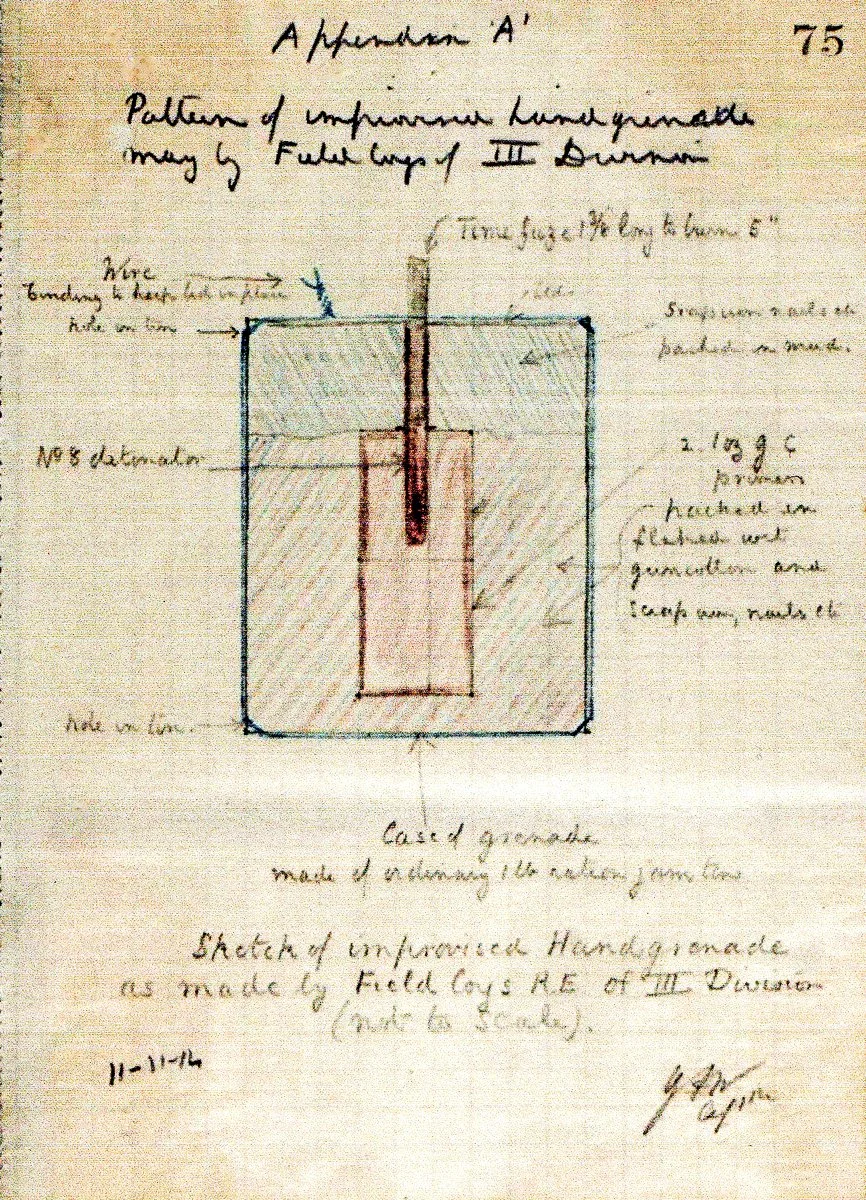 Appendix 'A'
75
Pattern of improvised hand grenade
may by Field Coys of III Division
Time fuze 1 3/8 long to burn 5"
Wire
binding to keep lid in place
hole in tin
Scrap iron nails etc
packed in mud.
No 8 detonator
2. 1oz g c
primers
packed in
flaked wet
guncotton and
scrap iron, nails etc
hole in tin.
Case of grenade
made of ordinary 1 lb ration jam tin
Sketch of improvised Hand grenade
as made by Field Coys R.E of III Division
(not to Scale).
11-11-14